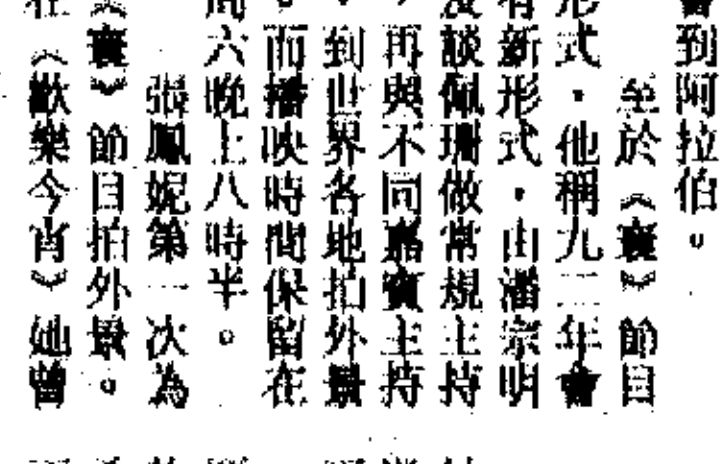 會到阿拉伯。
至於《囊》節目
形式，他稱九二年會
有新形式，由潘宗明
沒談佩珊做常規主持
，再與不同嘉賓主持
，到世界各地拍外景
。而播映時間保留在
周六晚上八時半。
張鳳妮第一次為
《囊》節目拍外景。
在《歡樂今宵》她曾